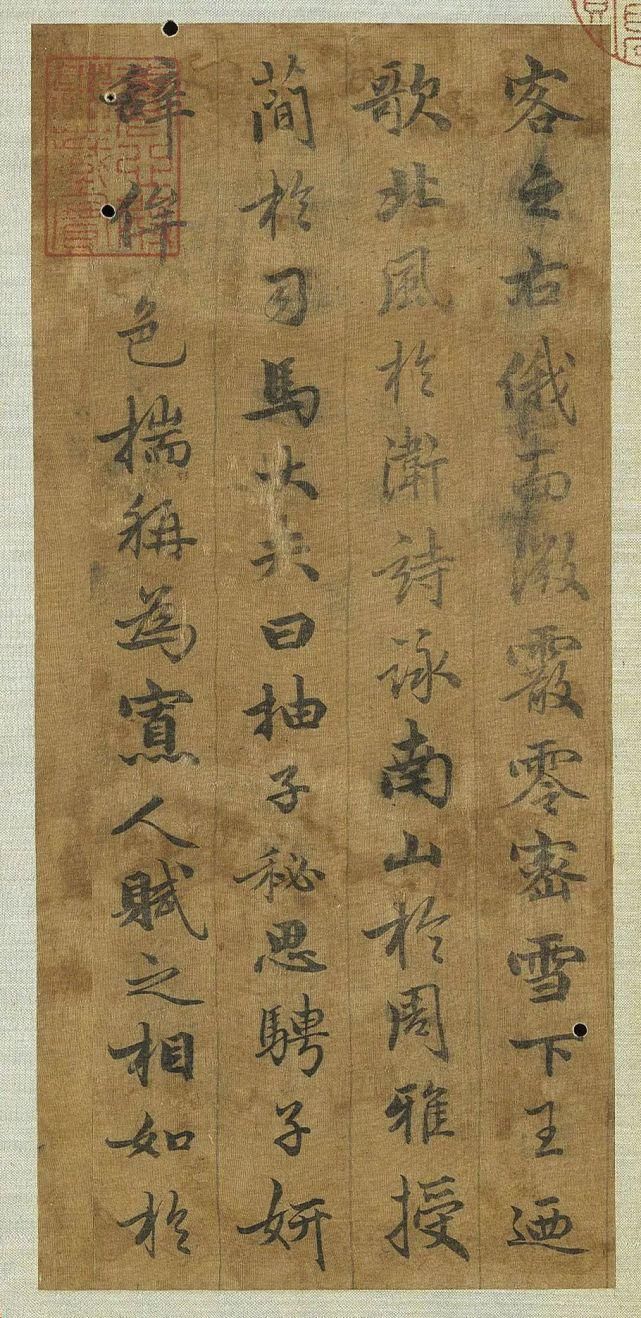 客之右俄而微霰零密雪下王迺
歌北風於衛詩詠南山於周雅授
蕑於司馬大夫曰抽子秘思騁子妍
辭侔色揣稱為寡人賦之相如於